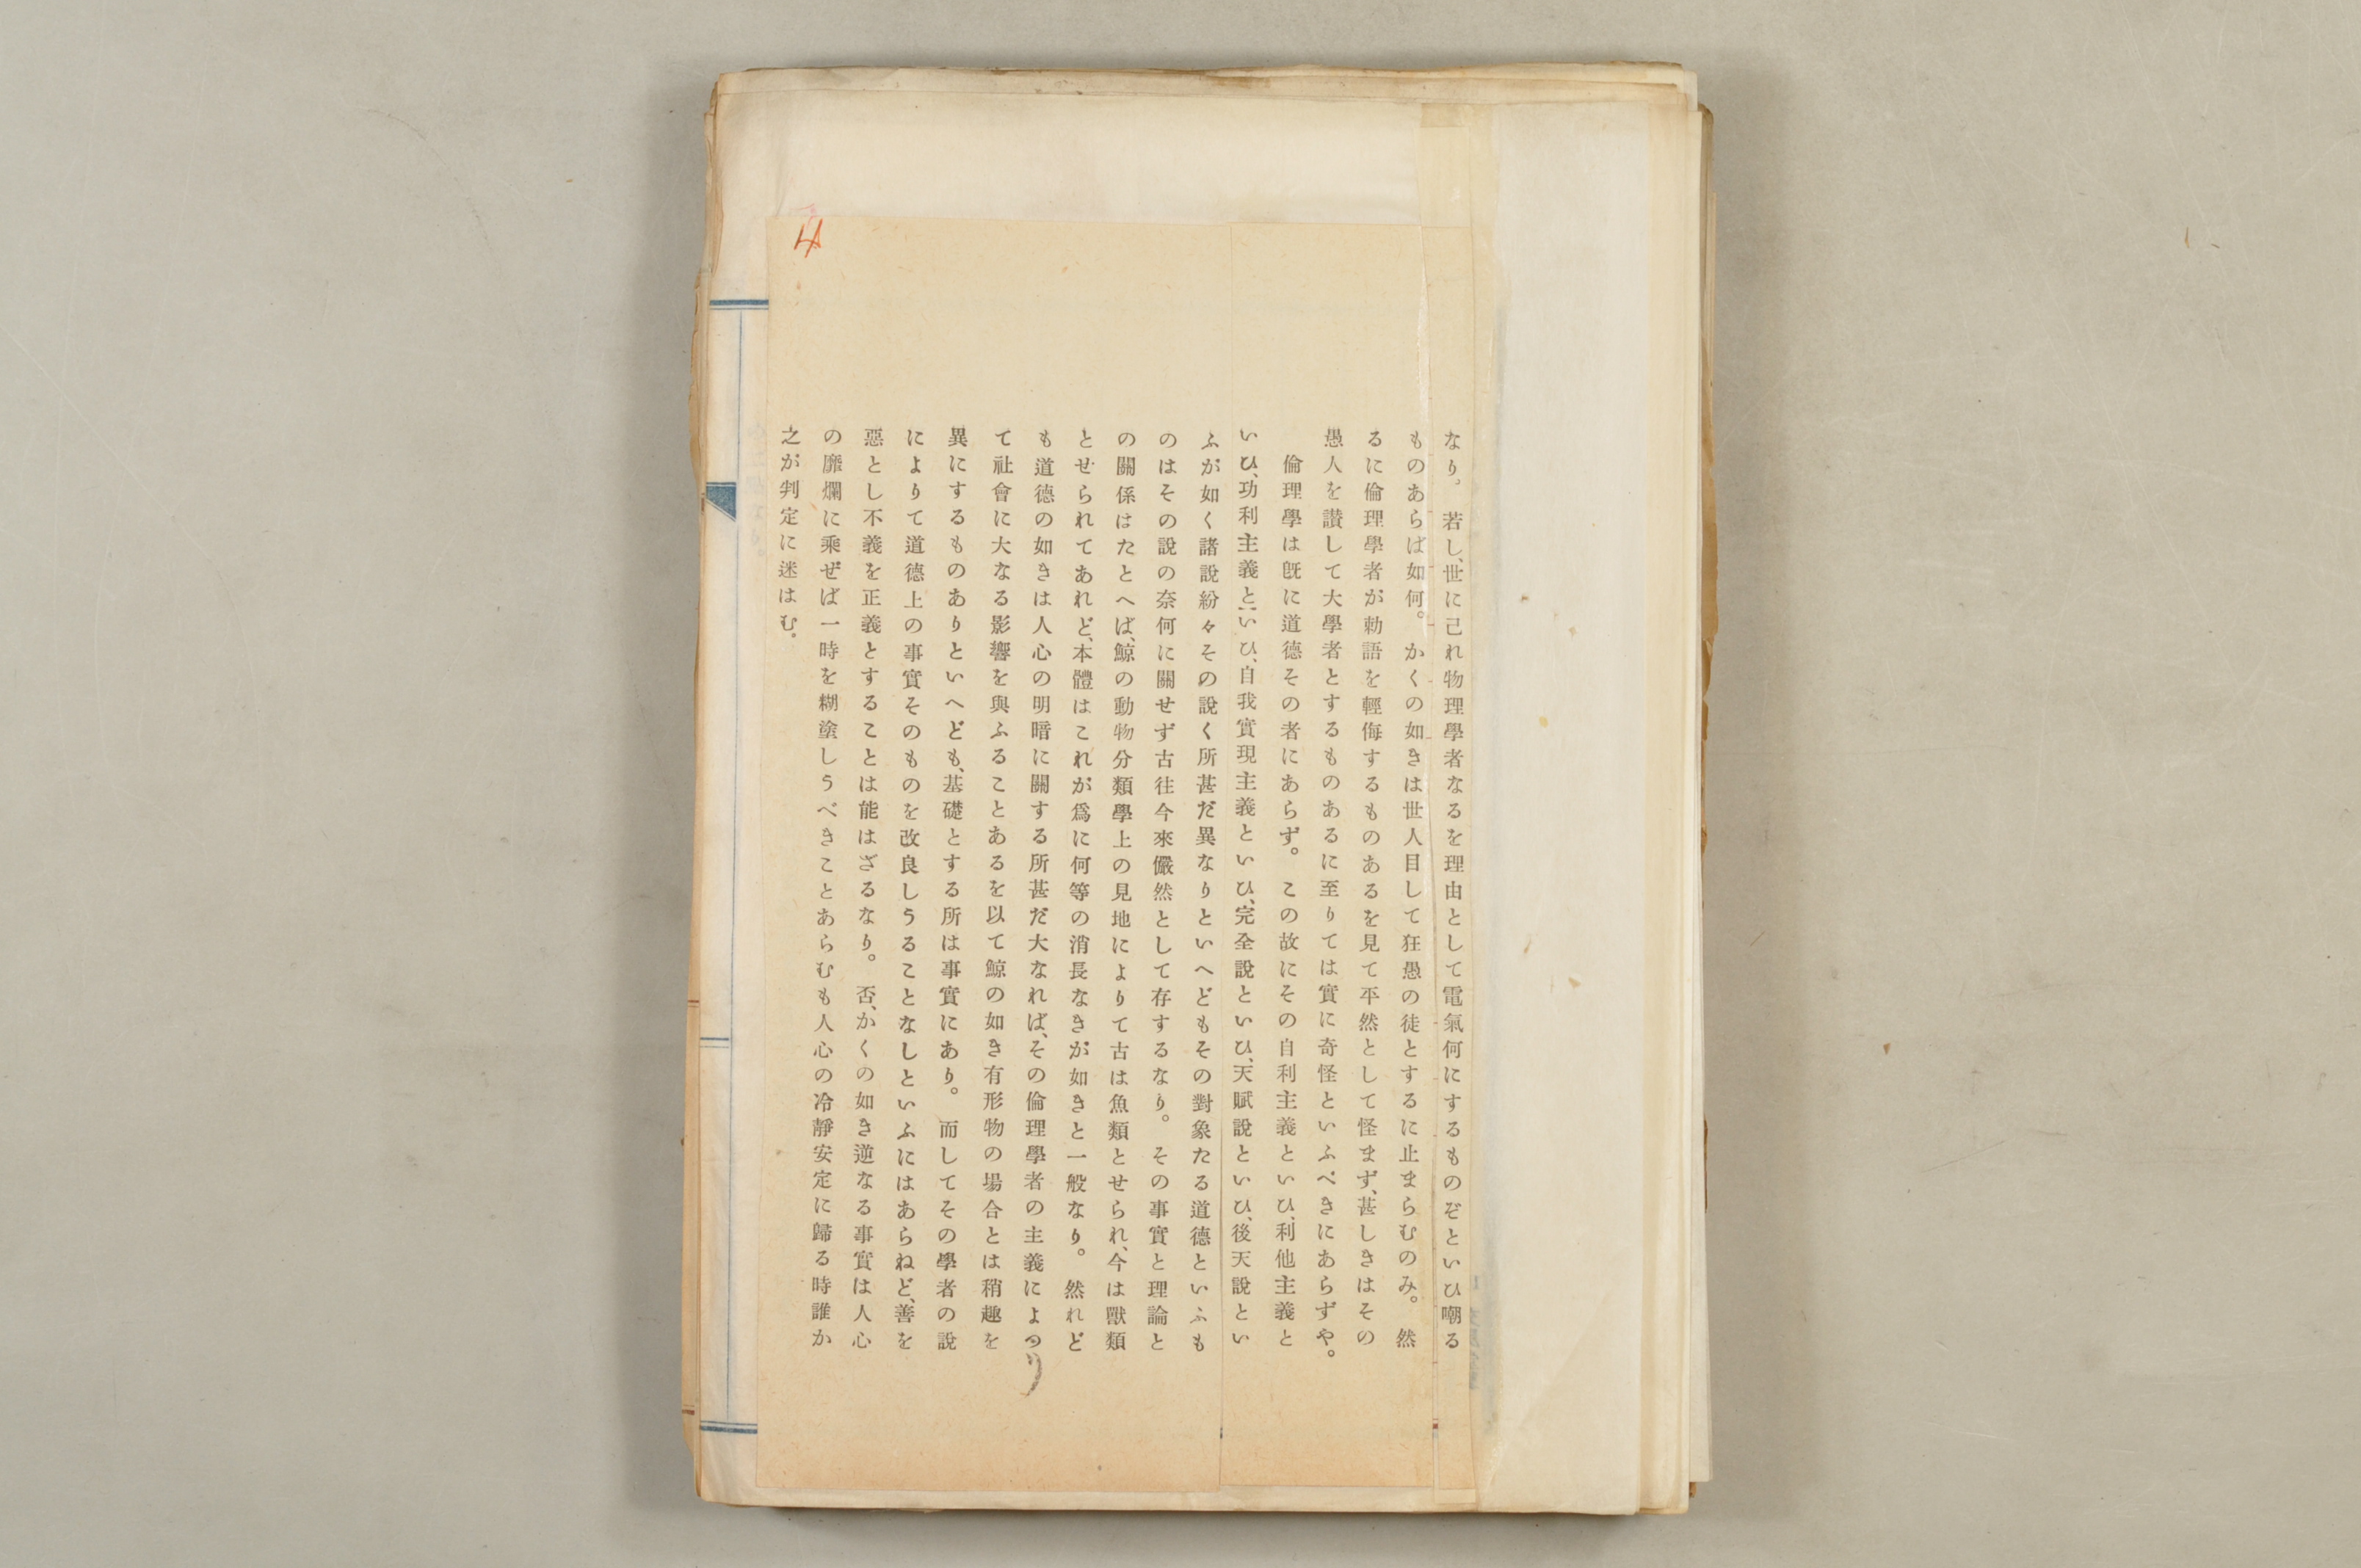 4
なり。若し、世に己れ物理學者なるを理由として電氣何にするものぞといひ嘲る
ものあらば如何。かくの如きは世人目して狂愚の徒とするに止まらむのみ。然
るに倫理學者が勅語を輕侮するものあるを見て平然として怪まず、甚しきはその
愚人を讃して大學者とするものあるに至りては實に奇怪といふべきにあらずや。
倫理學は旣に道德その者にあらず。この故にその自利主義といひ、利他主義と
いひ、功利主義といひ、自我實現主義といひ、完全說といひ、天賦說といひ、後天說とい
ふが如く諸說紛々その說く所甚だ異なりといへどもその對象たる道德といふも
のはその說の奈何に關せず古往今來儼然として存するなり。その事實と理論と
の關係はたとへば、鯨の動物分類學上の見地によりて古は魚類とせられ、今は獸類
とせられてあれど、本體はこれが爲に何等の消長なきが如きと一般なり。然れど
も道德の如きは人心の明暗に關する所甚だ大なれば、その倫理學者の主義によつり
て社會に大なる影響を與ふることあるを以て鯨の如き有形物の場合とは稍趣を
異にするものありといへども、基礎とする所は事實にあり。而してその學者の說
によりて道德上の事實そのものを改良しうることなしといふにはあらねど、善を
惡とし不義を正義とすることは能はざるなり。否、かくの如き逆なる事實は人心
の靡爛に乘ぜば一時を糊塗しうべきことあらむも人心の冷靜安定に歸る時誰か
之が判定に迷はむ。